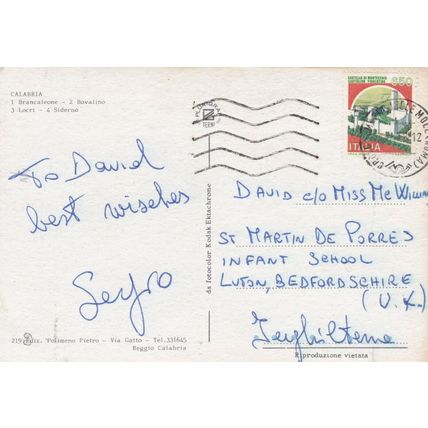 CALABRIA
1 Brancaleone - 2 Bovalino
3 Locri - 4 Siderno
To David
best wishes
Sergio
219 Ediz. Polimeno Pietro - Via Gatto - Tel.331645
Reggio Calabria
da fotocolor Kodak Ektachrome
CASTELLO DI MONTECCHIO
CASTIGLION FIORENTINO
650
ITALIA
DAVID c/o MISS MC WILLIA
ST MARTIN DE PORRES
INFANT SCHOOL
LUTON, BEDFORDSHIRE
(U.K.)
Inghilterra
Riproduzione vietata